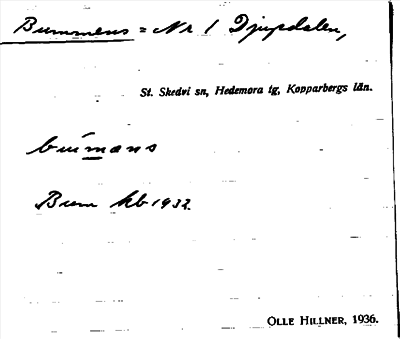 Bummens = Nr 1 Djupdalen,
St. Skedvi sn, Hedemora tg, Kopparbergs län.
bùmans
Bum kb 1932.
OLLE HILLNER, 1936.